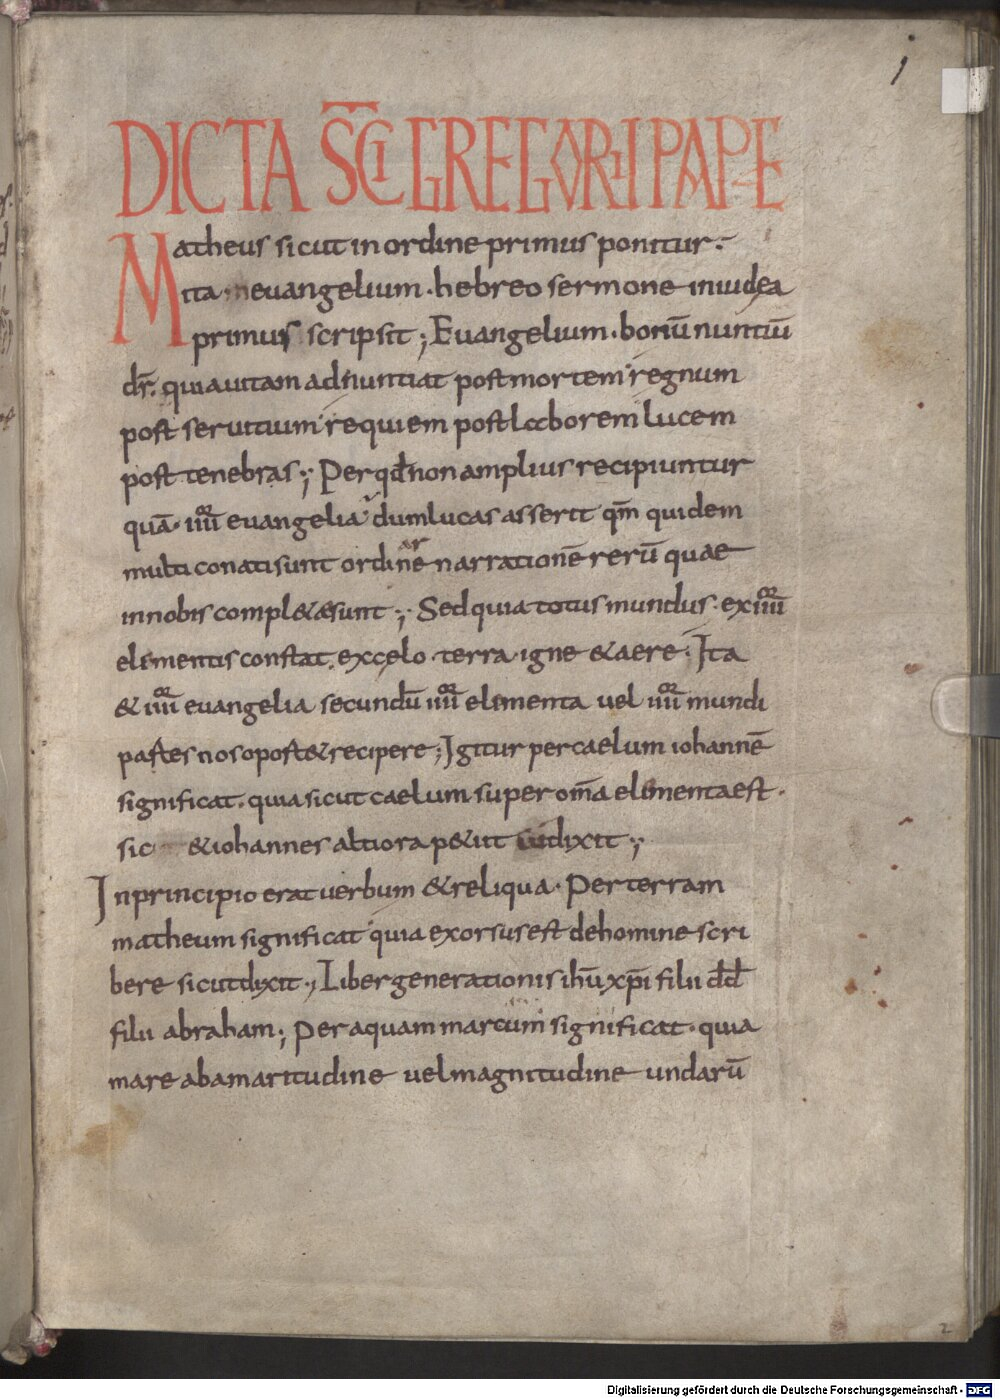 1
DICTA S̄C̄I GREGORII PAPE
Matheus sicut in ordine primus ponitur.
ita euangelium · hebreo sermone in iudea
primus scripsit ; Euangelium · bonū nuntiū
dr̄. quia uitam adnuntiat post mortem regnum
post seruitium requiem post laborem lucem
post tenebras ; Per qđ non amplius recipiuntur
quā · iiii euangelia dum lucas asserit qm̄ quidem
multi conati sunt ordinare narrationē rerū quae
in nobis compl&ae sunt ; Sed quia totus mundus · ex iiii
elementis constat. ex celo · terra · igne & aere · Ita
& iiii euangelia secundū iiii elementa uel iiii mundi
partes nos oport& recipere ; Igitur per caelum iohannē
significat · quia sicut caelum super om̄a elementa est ·
sic & iohannes altiora p&iit dixit ;
In principio erat uerbum & reliqua · Per terram
matheum significat quia exorsus est de homine scri
bere sicut dixit ; Liber generationis ihū xp̄i filii dđ
filii abraham ; Per aquam marcum significat · quia
mare ab amaritudine uel magnitudine undarū
2
Digitalisierung gefördert durch die Deutsche Forschungsgemeinschaft - DFG